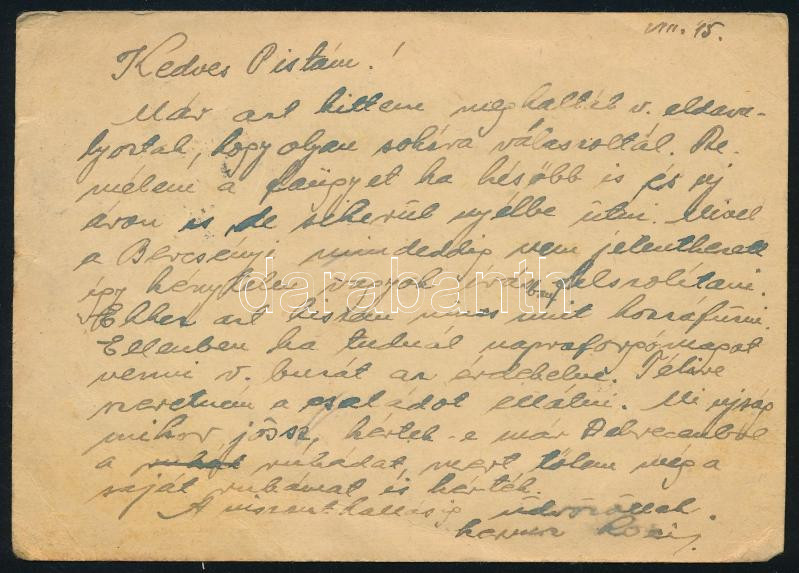 VIII. 15.
Kedves Pistám!
Már azt hittem meghaltál v. eldava-
hogy olyan sokára válaszoltál. Re-
mélem a faügyet ha később is és uj
áron is, de sikerül nyélbe ütni. Mivel
a Bercsényi mindeddig nem jelentkezett
így kénytelen vagyok írás felszolitani.
Ehhez azt hiszem nincs mit hozzáfűzni.
Ellenben ha tudnál napraforgómagot
venni v. buzát az érdekelne. Télire
szeretném a családot ellátni. Mi ujság
mikor jössz, kérték-e már Debrecenből
a ruhádat, mert tőlem még a
saját ruhámat is kérték.
A viszonthallásig üdvözöllek.
darabanth